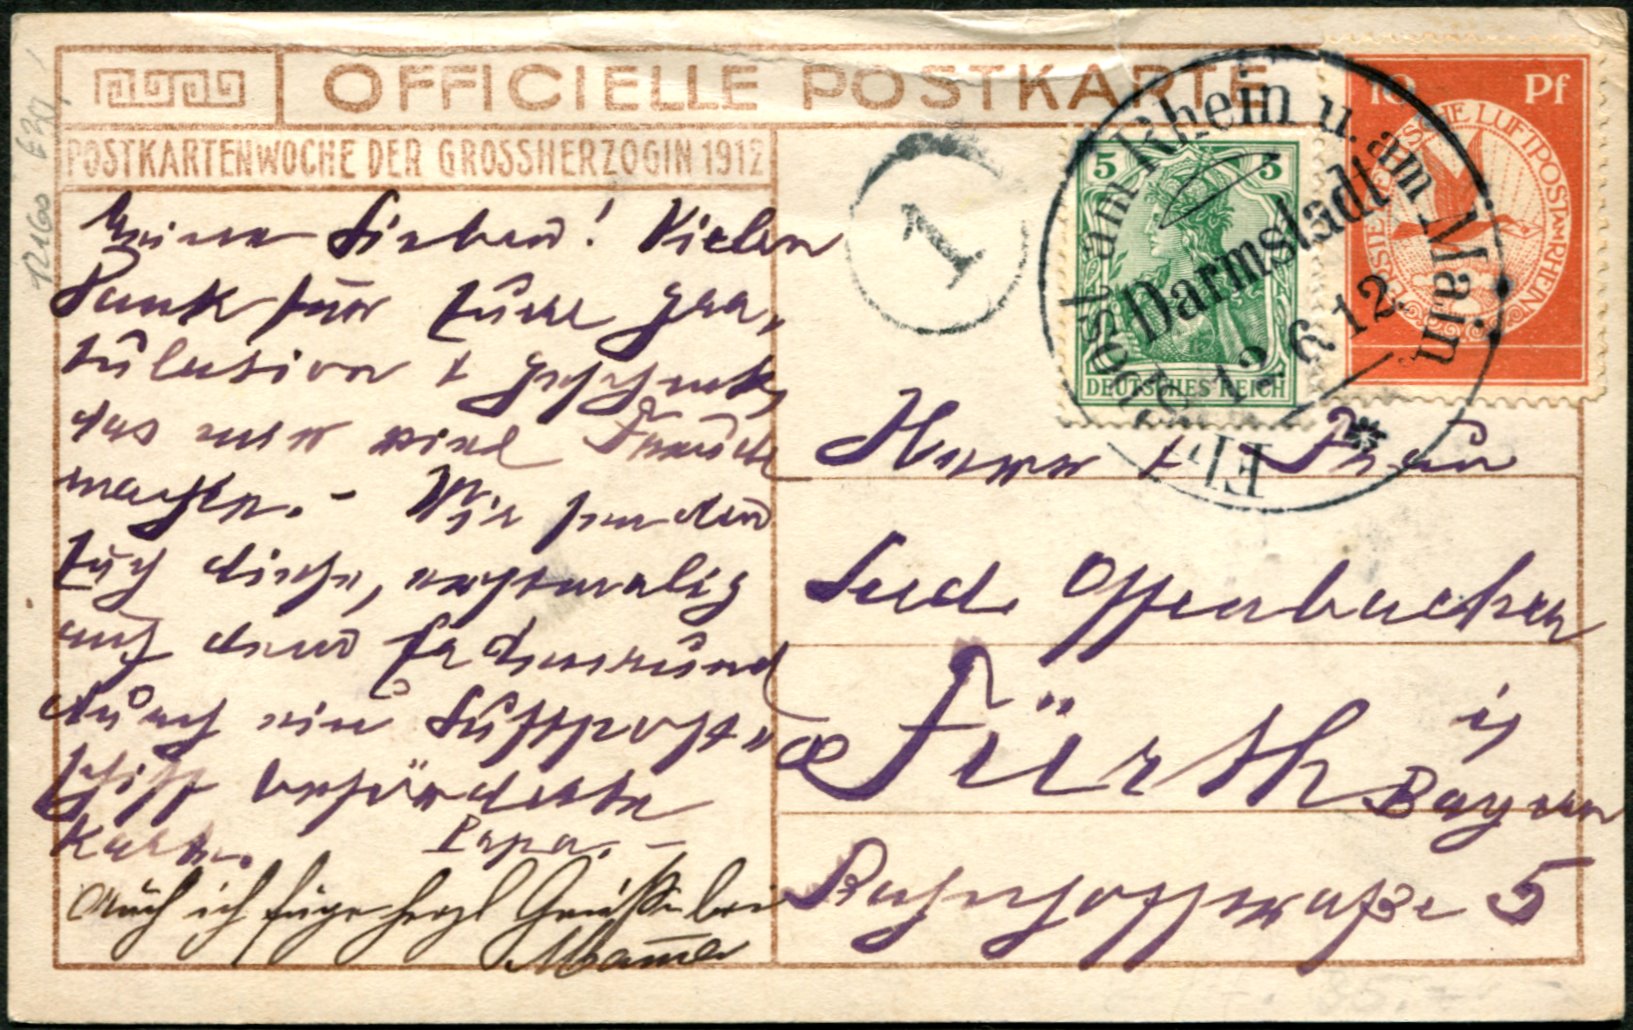 OFFICIELLE POSTKARTE
POSTKARTENWOCHE DER GROSSHERZOGIN 1912
Meine Lieben! Vielen
Dank für Eure Gra-
tulation + Geschenk,
das mir viel Freude
machte. - Wir senden
Euch diese, erstmalig
auf dem
durch ein Luftpost-
schiff beförderte
Karte. Papa. -
Auch ich füge herzl Grüße bei
Mama
1
5 5
DEUTSCHES REICH
10 Pf
LUFTPOST AM RHEIN
Flugpost am Rhein u. am Main
Darmstadt
12.6.12.
Herrn + Frau
Lud. Offenbacher
Fürth i/
Bayern
Bahnhofstraße 5